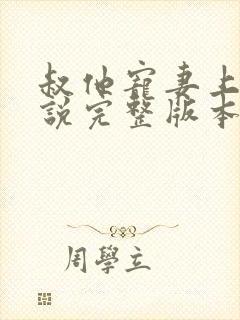 叔他寵妻上
說完整版本
周學立